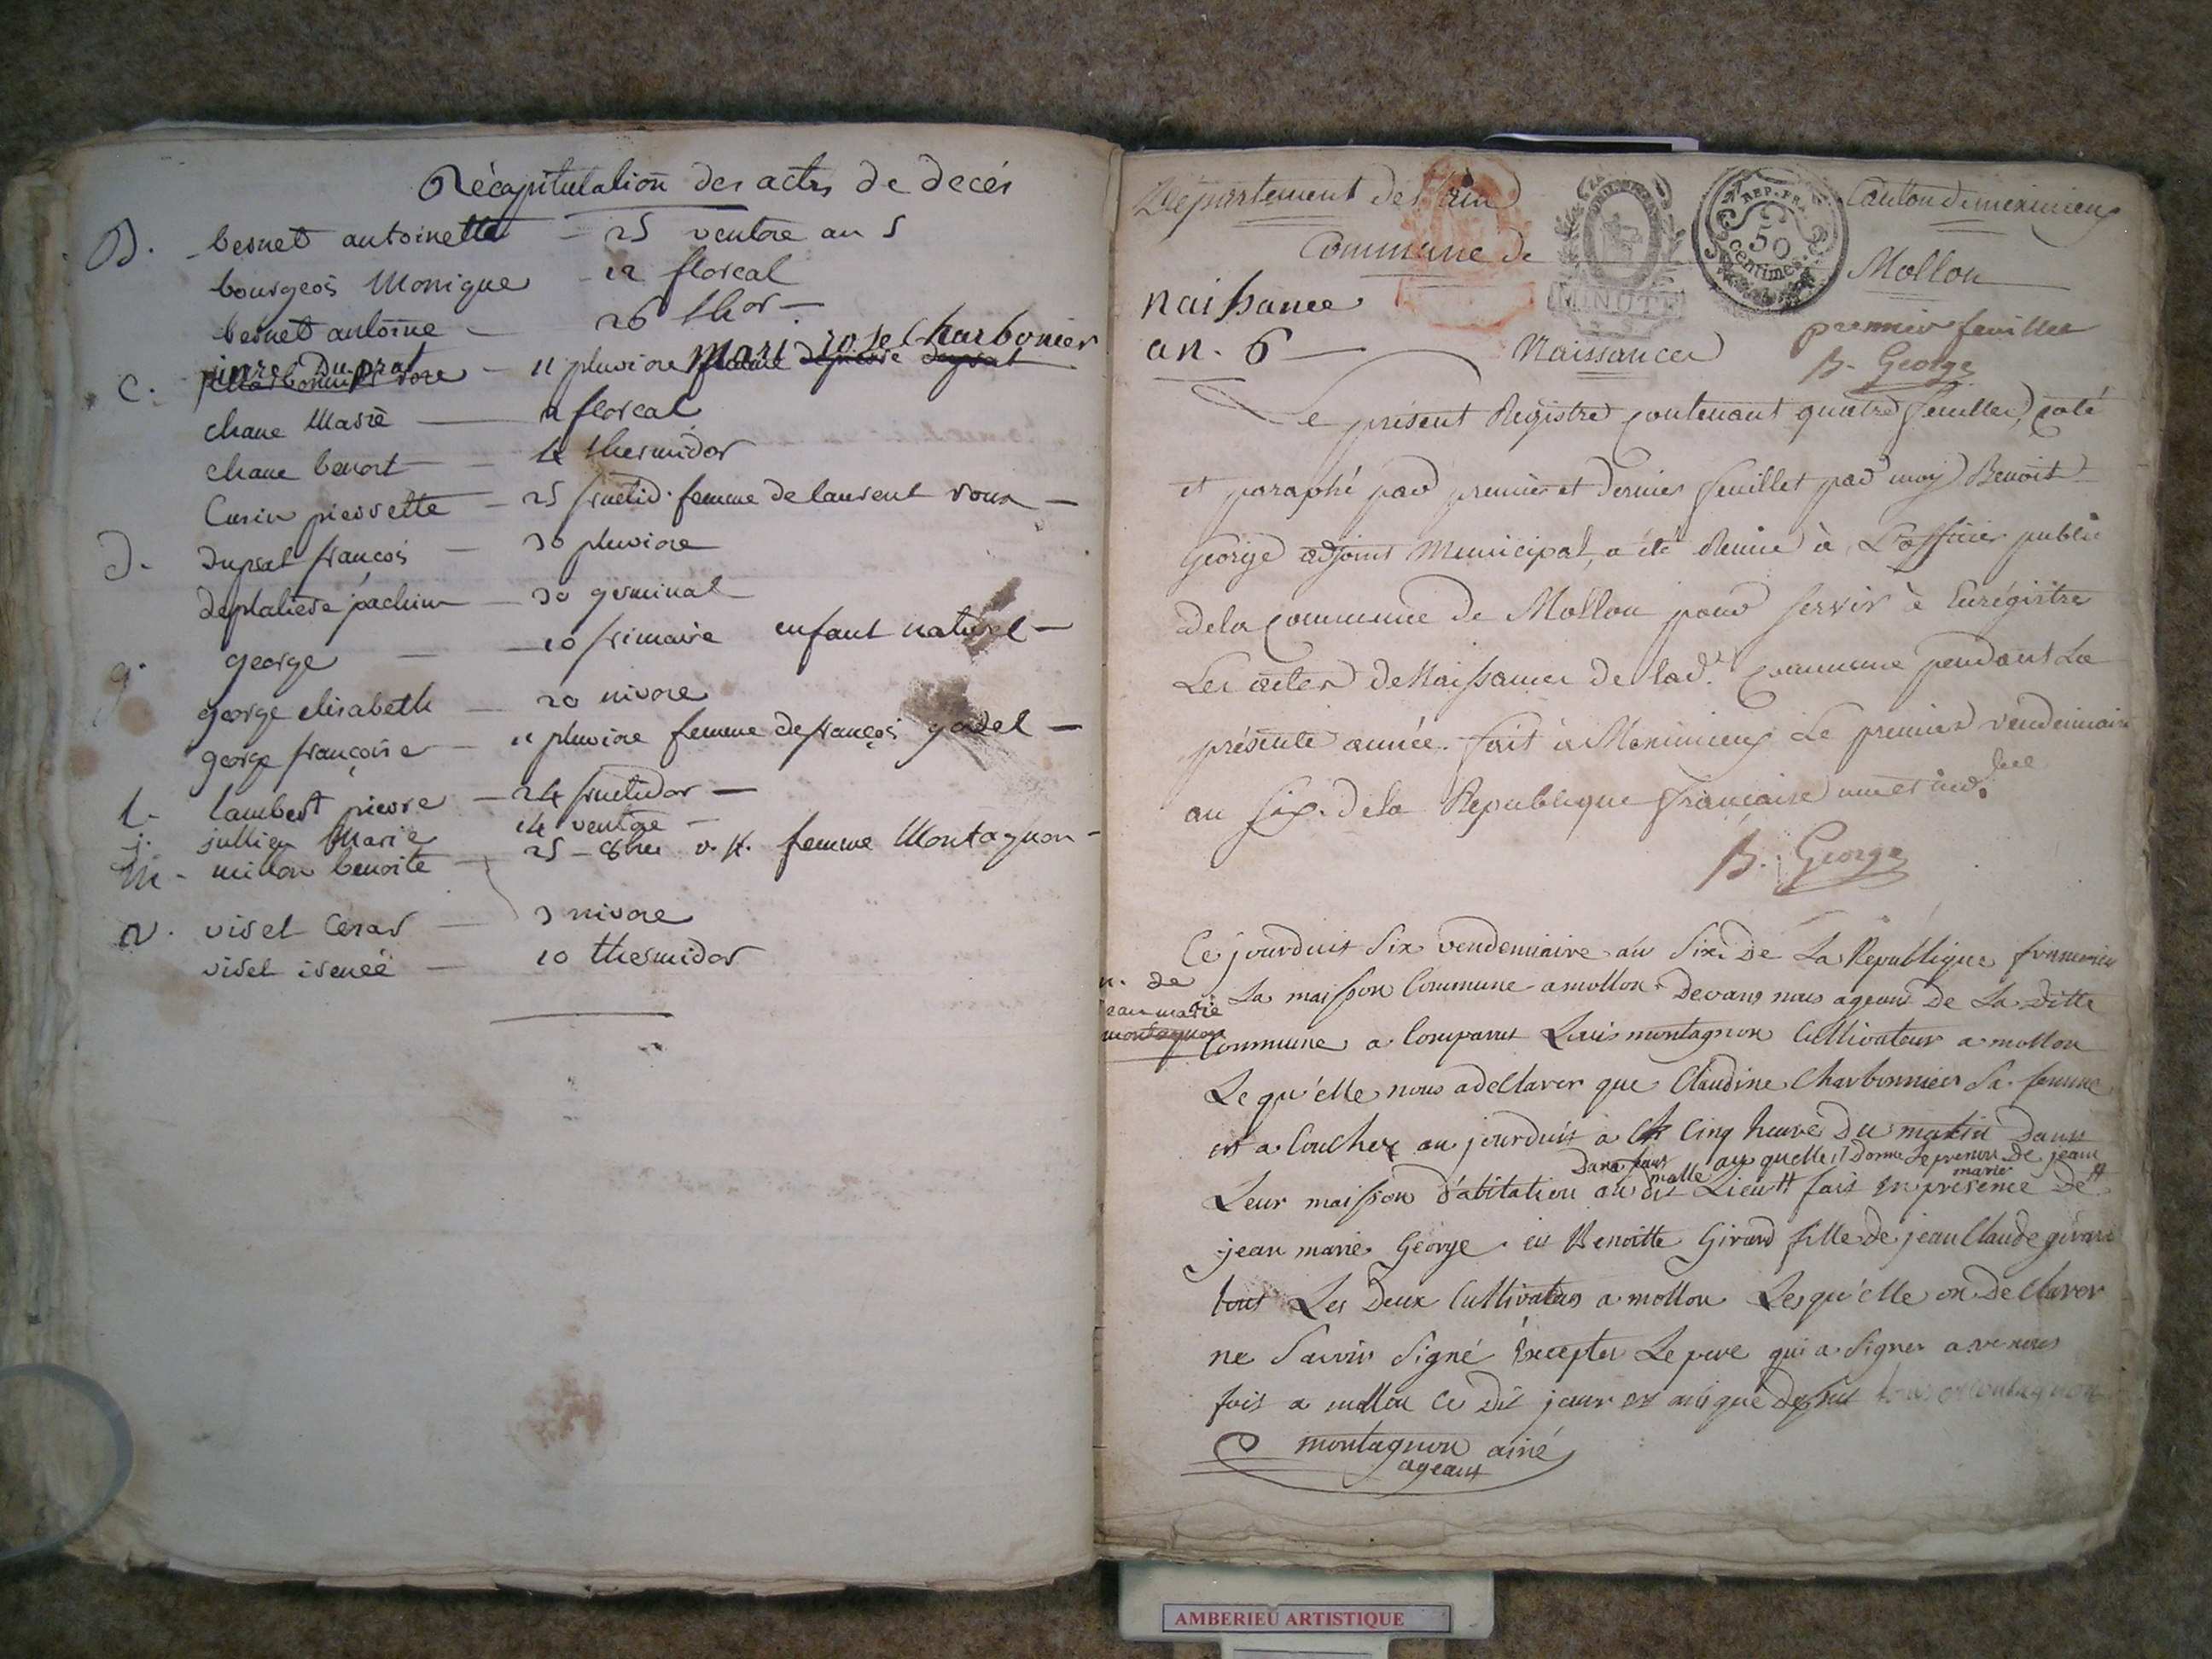 Récapitulation des actes de decés
B. besnet antoinette - 25 ventose an 5
bourgeois Monique - 12 floreal
besnet antoine - 26 thor -
pierre Duprat - 11 pluviose Mari rose Charbonier
C.
chane Marie - floreal
chane benoit - 14 thermidor
Curin pierrette - 25 fructid. femme de laurent roux -
D. Duprat françois - 30 pluviose
deplatiere joachim - 30 germinal
g. george - 10 frimaire enfant naturel -
george elisabeth - 20 nivose
george françoise - 11 pluviose femme de françois godel -
l. lambert pierre - 24 fructidor -
j. jullien Marie 14 ventose -
M. millon benoite - 25 - 8bre v. st. femme Montagnon -
v. viset Cesar - 3 nivose
viset irenée - 10 thermidor
Département de l'ain
Canton de meximieux
Commune de Mollon
REP. FR.
50
centimes
MINUTE
naissance
an. 6
Naissances
premier feuillet
B. George
Le présent Registre contenant quatre feuillets, coté
et paraphé par premier et dernier feuillet par moy Benoit
George adjoint Municipal, a été Remis à L'officier public
de la Commune de Mollon pour servir à Enrégistre
Les actes de Naissances de lad.e Commune pendant La
présente année. fait à Meximieux Le premier vendemiaire
an six. de la Republique française une et ind.ble
B. George
Ce jourduit six vendemiaire an six. De La Republique franneise
n. de
jean marie
montagnon
La maisson Commune a mollon. Devans nous ageant De La Ditte
Commune a Comparut Louis montagnon Cultivateur a mollon
Le qu'elle nous a decllarer que Claudine Charbonnier sa femme
et a Couchez au jourduit a Cinq heure Du matin Dans
auquelle il Donne Le prenon De jean
marie
Leur maisson d'abitation au dit Lieu fait en presence De
jean marie George et Benoitte Girard fille de jean Claude girard
tous Les Deux Cultivateurs a mollon Lesqu'elle on De Clarer
ne savoir signé Excepter Le pere qui a signer ave nous
fait a mollon Ce Dit jour et an que Dessus
montagnon ainé
ageant
AMBERIEU ARTISTIQUE